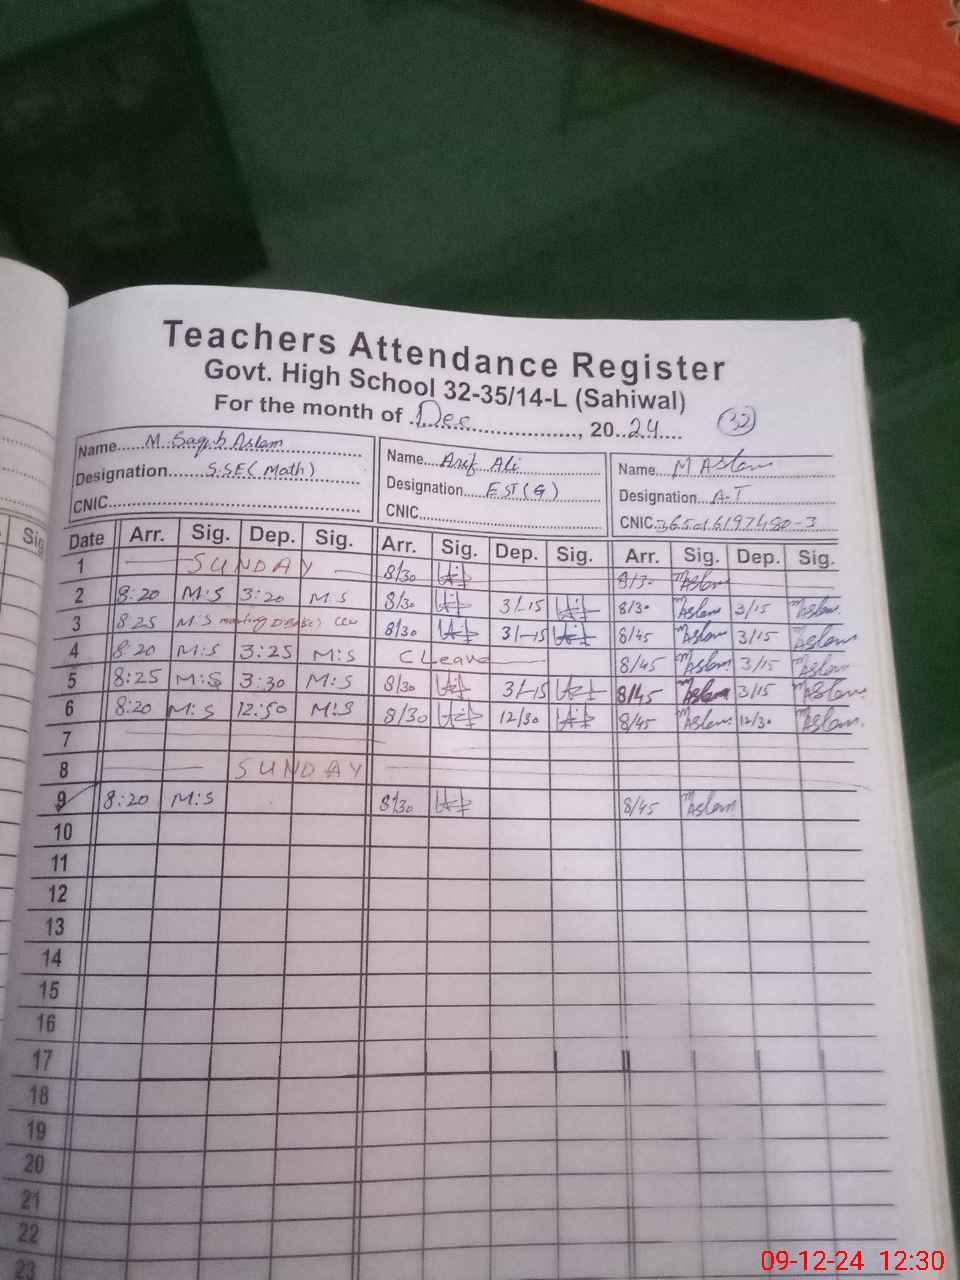 Teachers Attendance Register
Govt. High School 32-35/14-L (Sahiwal)
For the month of Dec, 2024
32
Name M Saqib Aslam Name Arif Ali Name M Aslam
Designation S.SE (Math) Designation EST (G) Designation A-T
CNIC CNIC CNIC
Sig
Date Arr. Sig. Dep. Sig. Arr. Sig. Dep. Sig. Arr. Sig. Dep. Sig.
1 SUNDAY 8/30 8/30 M Aslam
2 8:20 M:S 3:20 M:S 8/30 3/-15 8/30 M Aslam 3/15 M Aslam
3 8:25 M:S meeting 8/30 3/-15 8/45 M Aslam 3/15 M Aslam
4 8:20 M:S 3:25 M:S C Leave 8/45 M Aslam 3/15 M Aslam
5 8:25 M:S 3:30 M:S 8/30 3/-15 8/45 M Aslam 3/15 M Aslam
6 8:20 M:S 12:50 M:S 8/30 12/30 8/45 M Aslam 12/30 M Aslam
7
8 SUNDAY
9 8:20 M:S 8/30 8/45 M Aslam
10
11
12
13
14
15
16
17
18
19
20
21
22
23
09-12-24 12:30